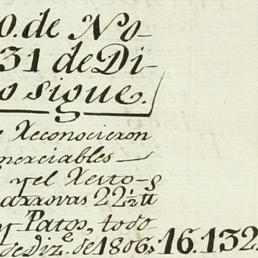 0. de No-
31 de Di-
o sigue.
e Reconocieron
merciables
y el Resto
arrovas 22½ ll
y Patos, todo
de diz.e de 1806, 16.132.